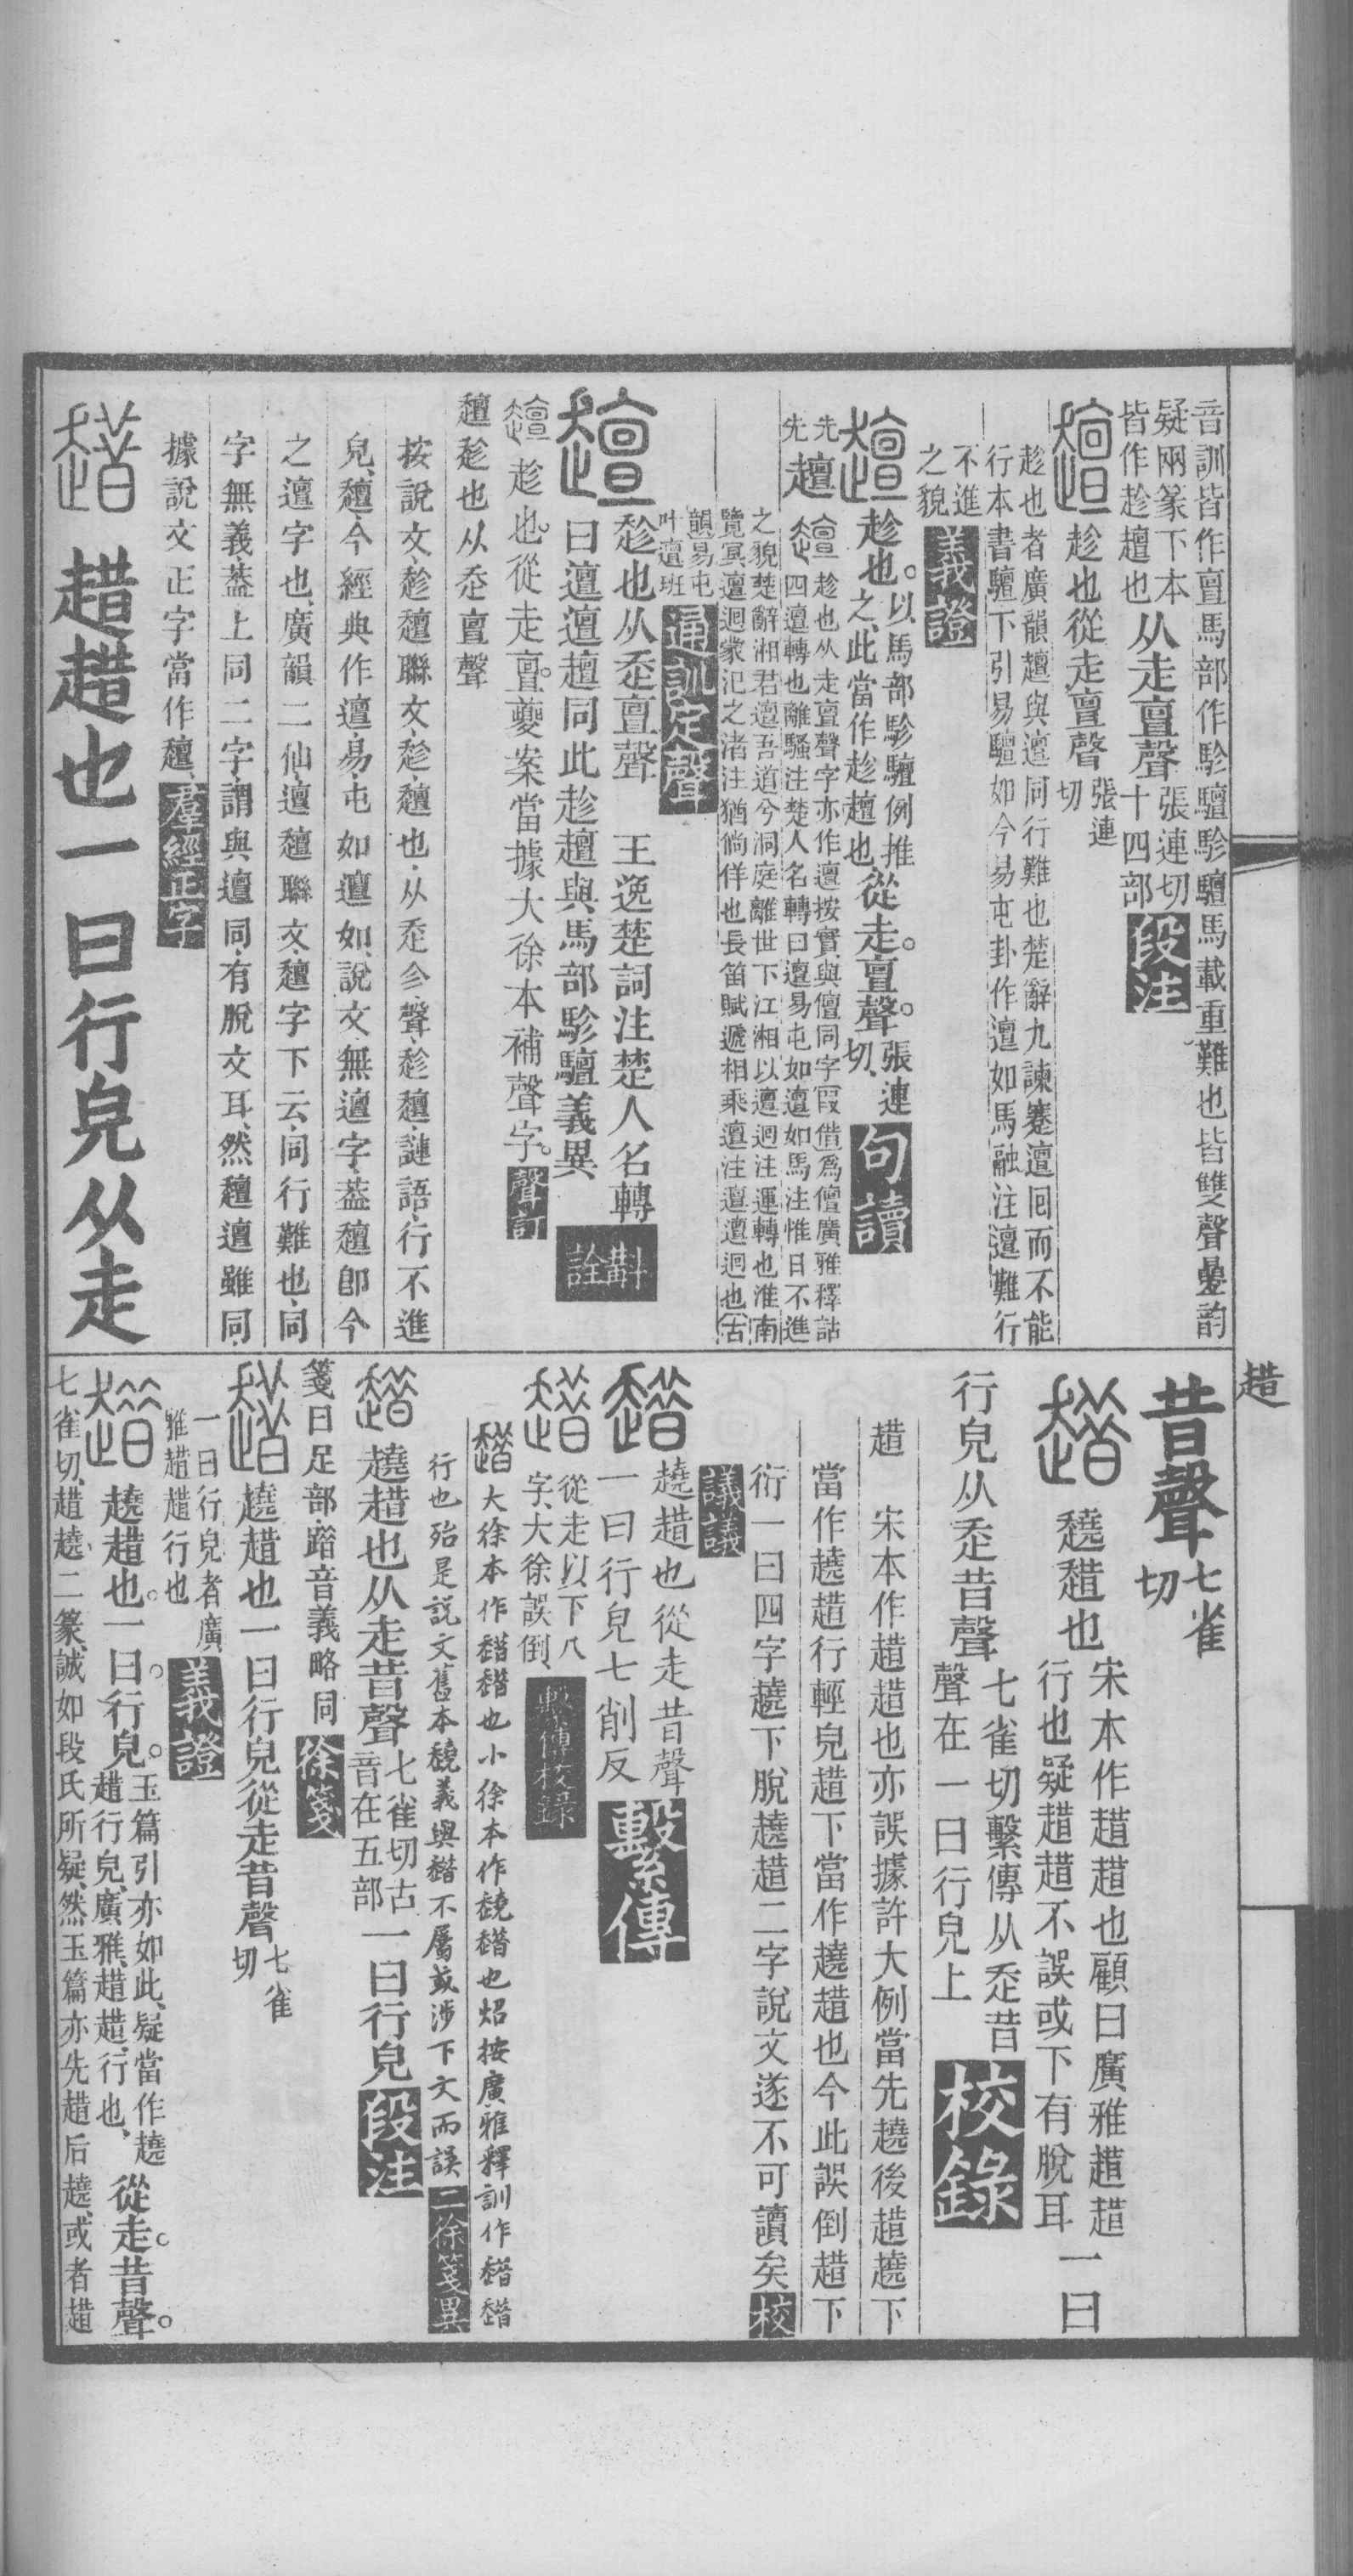 音訓皆作亶馬部作駗驙駗驙馬載重難也皆雙聲曡韵
疑兩篆下本
皆作趁趲也
从走亶聲
張連切
十四部
段注
趁也從走亶聲
張連
切
趁也者廣韻趲與邅同行難也楚辭九諫蹇邅囘而不能
行本書驙下引易驙如今易屯卦作邅如馬融注邅難行
不進
之貌
義證
趁也。
以馬部駗驙例推
之、此當作趁趲也
從走。亶聲。
張連
切、
句讀
先
先
趲
趁也从走亶聲字亦作邅按實與儃同字叚借爲儃廣雅釋詁
四邅轉也離騷注楚人名轉曰邅易屯如邅如馬注惟日不進
之貌楚辭湘君邅吾道兮洞庭離世下江湘以邅迴注運轉也淮南
覽冥邅迴蒙汜之渚注猶倘佯也長笛賦遞相乘邅注邅邅迴也古
韻易屯
叶邅班
通訓定聲
趁也从走亶聲　王逸楚詞注楚人名轉
曰邅邅趲同此趁趲與馬部駗驙義異
斠詮
趁也。從走亶。夔案當據大徐本補聲字。
聲訂
趲趁也从走亶聲
按說文趁趲聯文、趁、趲也、从走㐱聲、趁趲謰語、行不進
皃、趲、今經典作邅、易、屯如邅如、說文無邅字、葢趲卽今
之邅字也、廣韻二仙、邅趲聯文、趲字下云、同行難也、同
字無義、葢上同二字、謂與邅同、有脫文耳、然趲邅雖同、
據說文正字當作趲、
羣經正字
趞趞也一曰行皃从走
趞
昔聲
七雀
切
趬趞也
宋本作趞趞也顧曰廣雅趞趞
行也疑趞趞不誤或下有脫耳
一曰
行皃从走昔聲
七雀切繫傳从走昔
聲在一曰行皃上
校錄
趞　宋本作趞趞也亦誤據許大例當先趬後趞趬下
當作趬趞行輕皃趞下當作趬趞也今此誤倒趞下
衍一曰四字趬下脫趬趞二字說文遂不可讀矣
校
議議
趬趞也從走昔聲
一曰行皃七削反
繫傳
從走以下八
字、大徐誤倒、
繫傳校錄
大徐本作趞趞也小徐本作趬趞也炤按廣雅釋訓作趞趞
行也殆是說文舊本趬義與趞不屬或涉下文而誤
二徐箋異
趬趞也从走昔聲
七雀切古
音在五部
一曰行皃
段注
箋曰足部踖音義略同
徐箋
趬趞也一曰行皃從走昔聲
七雀
切
一曰行皃者廣
雅趞趞行也
義證
趬趞也。一曰。行皃。
玉篇引亦如此、疑當作趬
趞行皃、廣雅、趞趞、行也、
從走。昔聲。
七雀切、趞趬二篆、誠如段氏所疑、然玉篇亦先趞后趬、或者趞